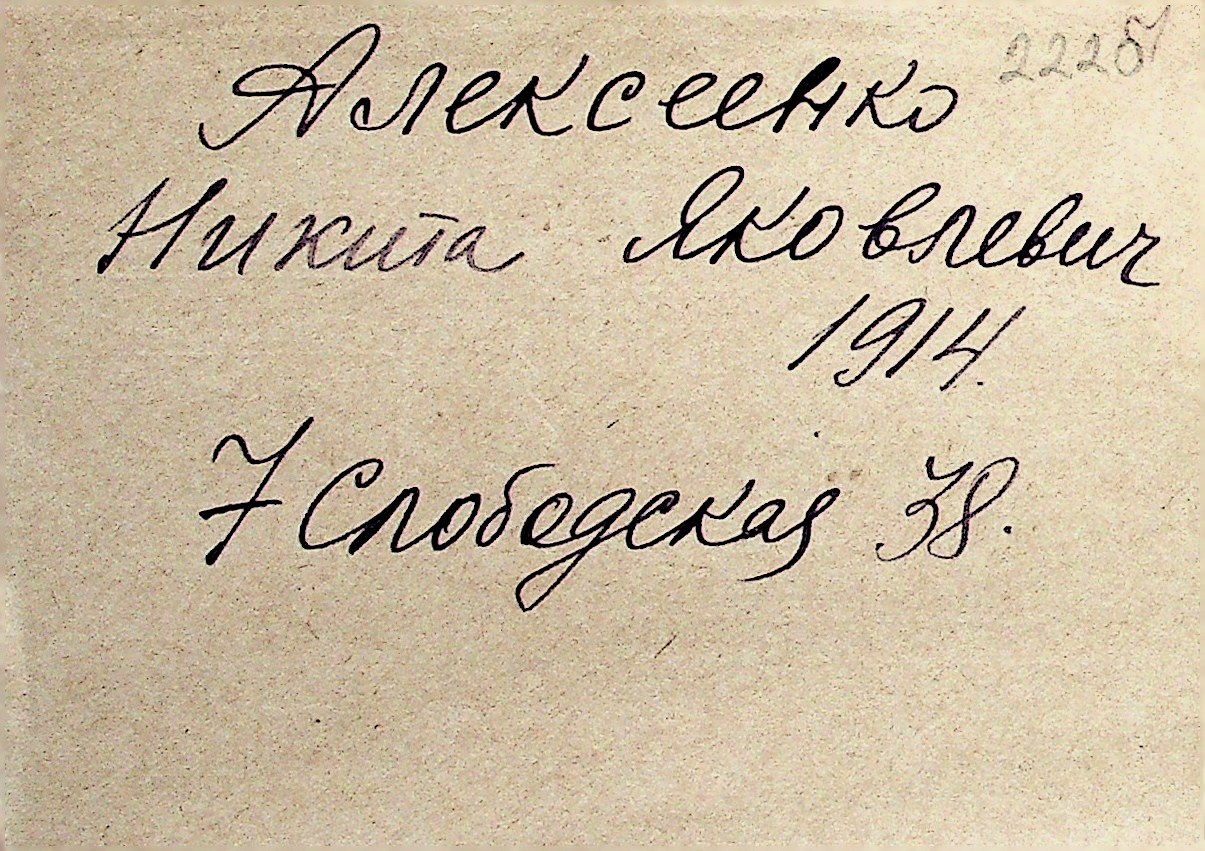 Алексеенко
Никита Яковлевич
1914.
7 Слободская 38.